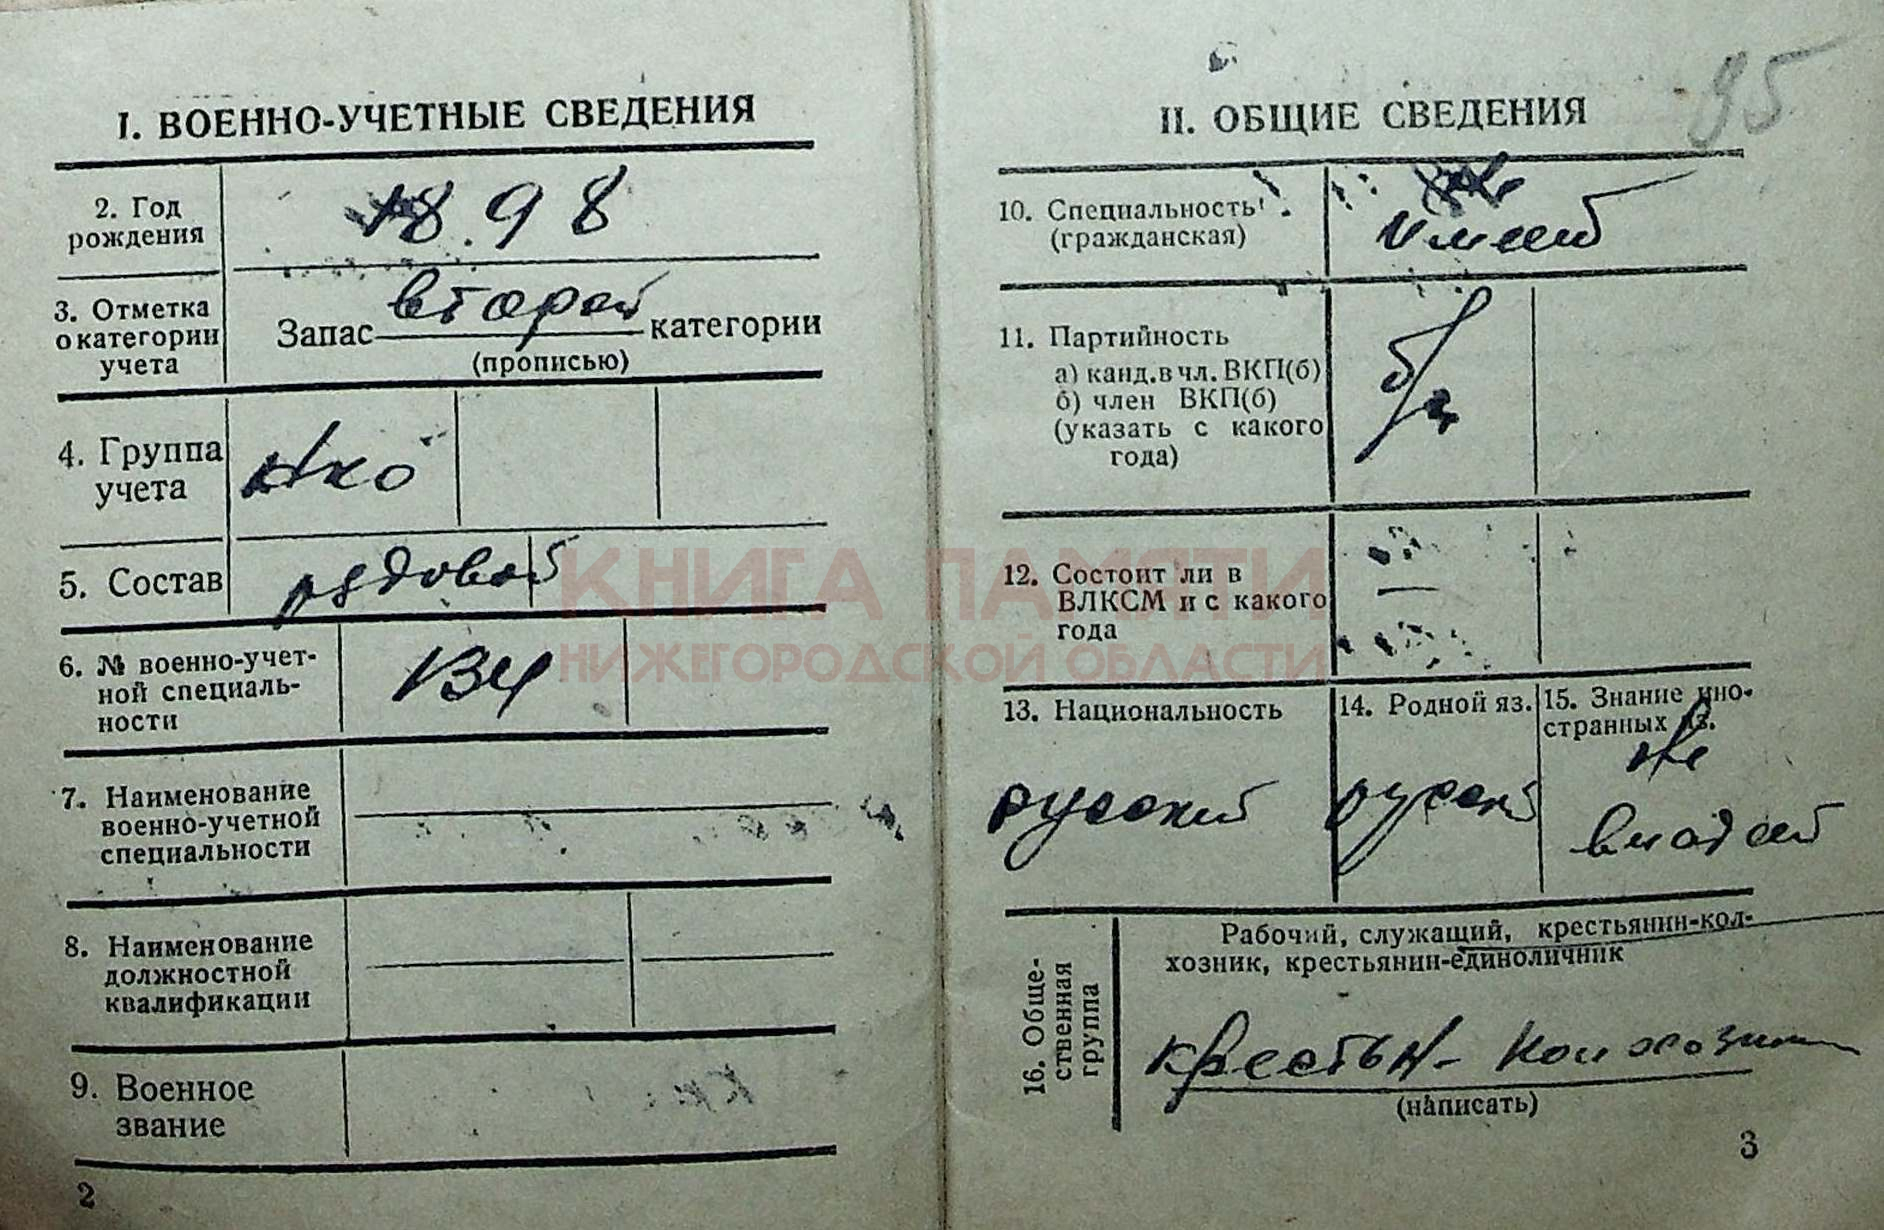 I. ВОЕННО-УЧЕТНЫЕ СВЕДЕНИЯ
2. Год
рождения
1898
3. Отметка
о категории
учета
Запас второй категории
(прописью)
4. Группа
учета
5. Состав
рядовой
6. № военно-учет-
ной специаль-
ности
134
7. Наименование
военно-учетной
специальности
8. Наименование
должностной
квалификации
9. Военное
звание
2
95
II. ОБЩИЕ СВЕДЕНИЯ
10. Специальность
(гражданская)
не
имеет
11. Партийность
а) канд. в чл. ВКП(б)
б) член ВКП(б)
(указать с какого
года)
б/п
12. Состоит ли в
ВЛКСМ и с какого
года
—
13. Национальность
русский
14. Родной яз.
русский
15. Знание ино-
странных яз.
не
владеет
16. Обще-
ственная
группа
Рабочий, служащий, крестьянин-кол-
хозник, крестьянин-единоличник
крестьян- колхозник
(написать)
3
КНИГА ПАМЯТИ
НИЖЕГОРОДСКОЙ ОБЛАСТИ